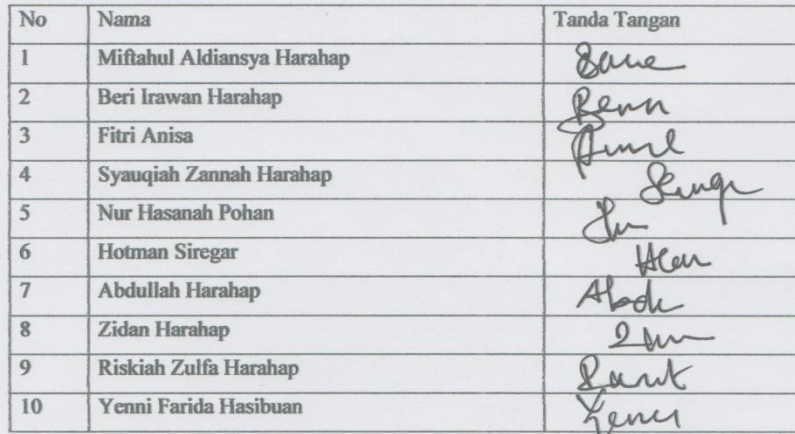 No Nama Tanda Tangan
1 Miftahul Aldiansya Harahap
2 Beri Irawan Harahap
3 Fitri Anisa
4 Syauqiah Zannah Harahap
5 Nur Hasanah Pohan
6 Hotman Siregar
7 Abdullah Harahap
8 Zidan Harahap
9 Riskiah Zulfa Harahap
10 Yenni Farida Hasibuan